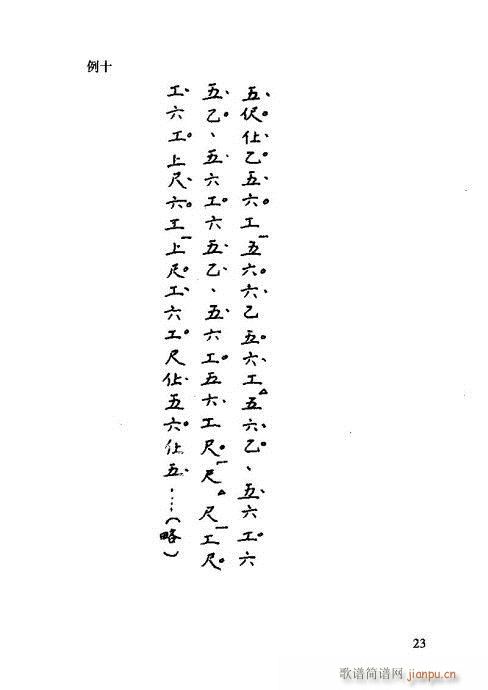 例十
五、伬。仩、乙。五、六。工五六。六、乙五。六、工五六、乙。、五、六工。六
五、乙。、五、六工。六五、乙、、五、六工。五六、工尺。尺尺工尺。
工、六工。上尺、六。工上尺。工、六工。尺仩、五六。仩五、……(略)
23
歌谱简谱网
jianpu.cn